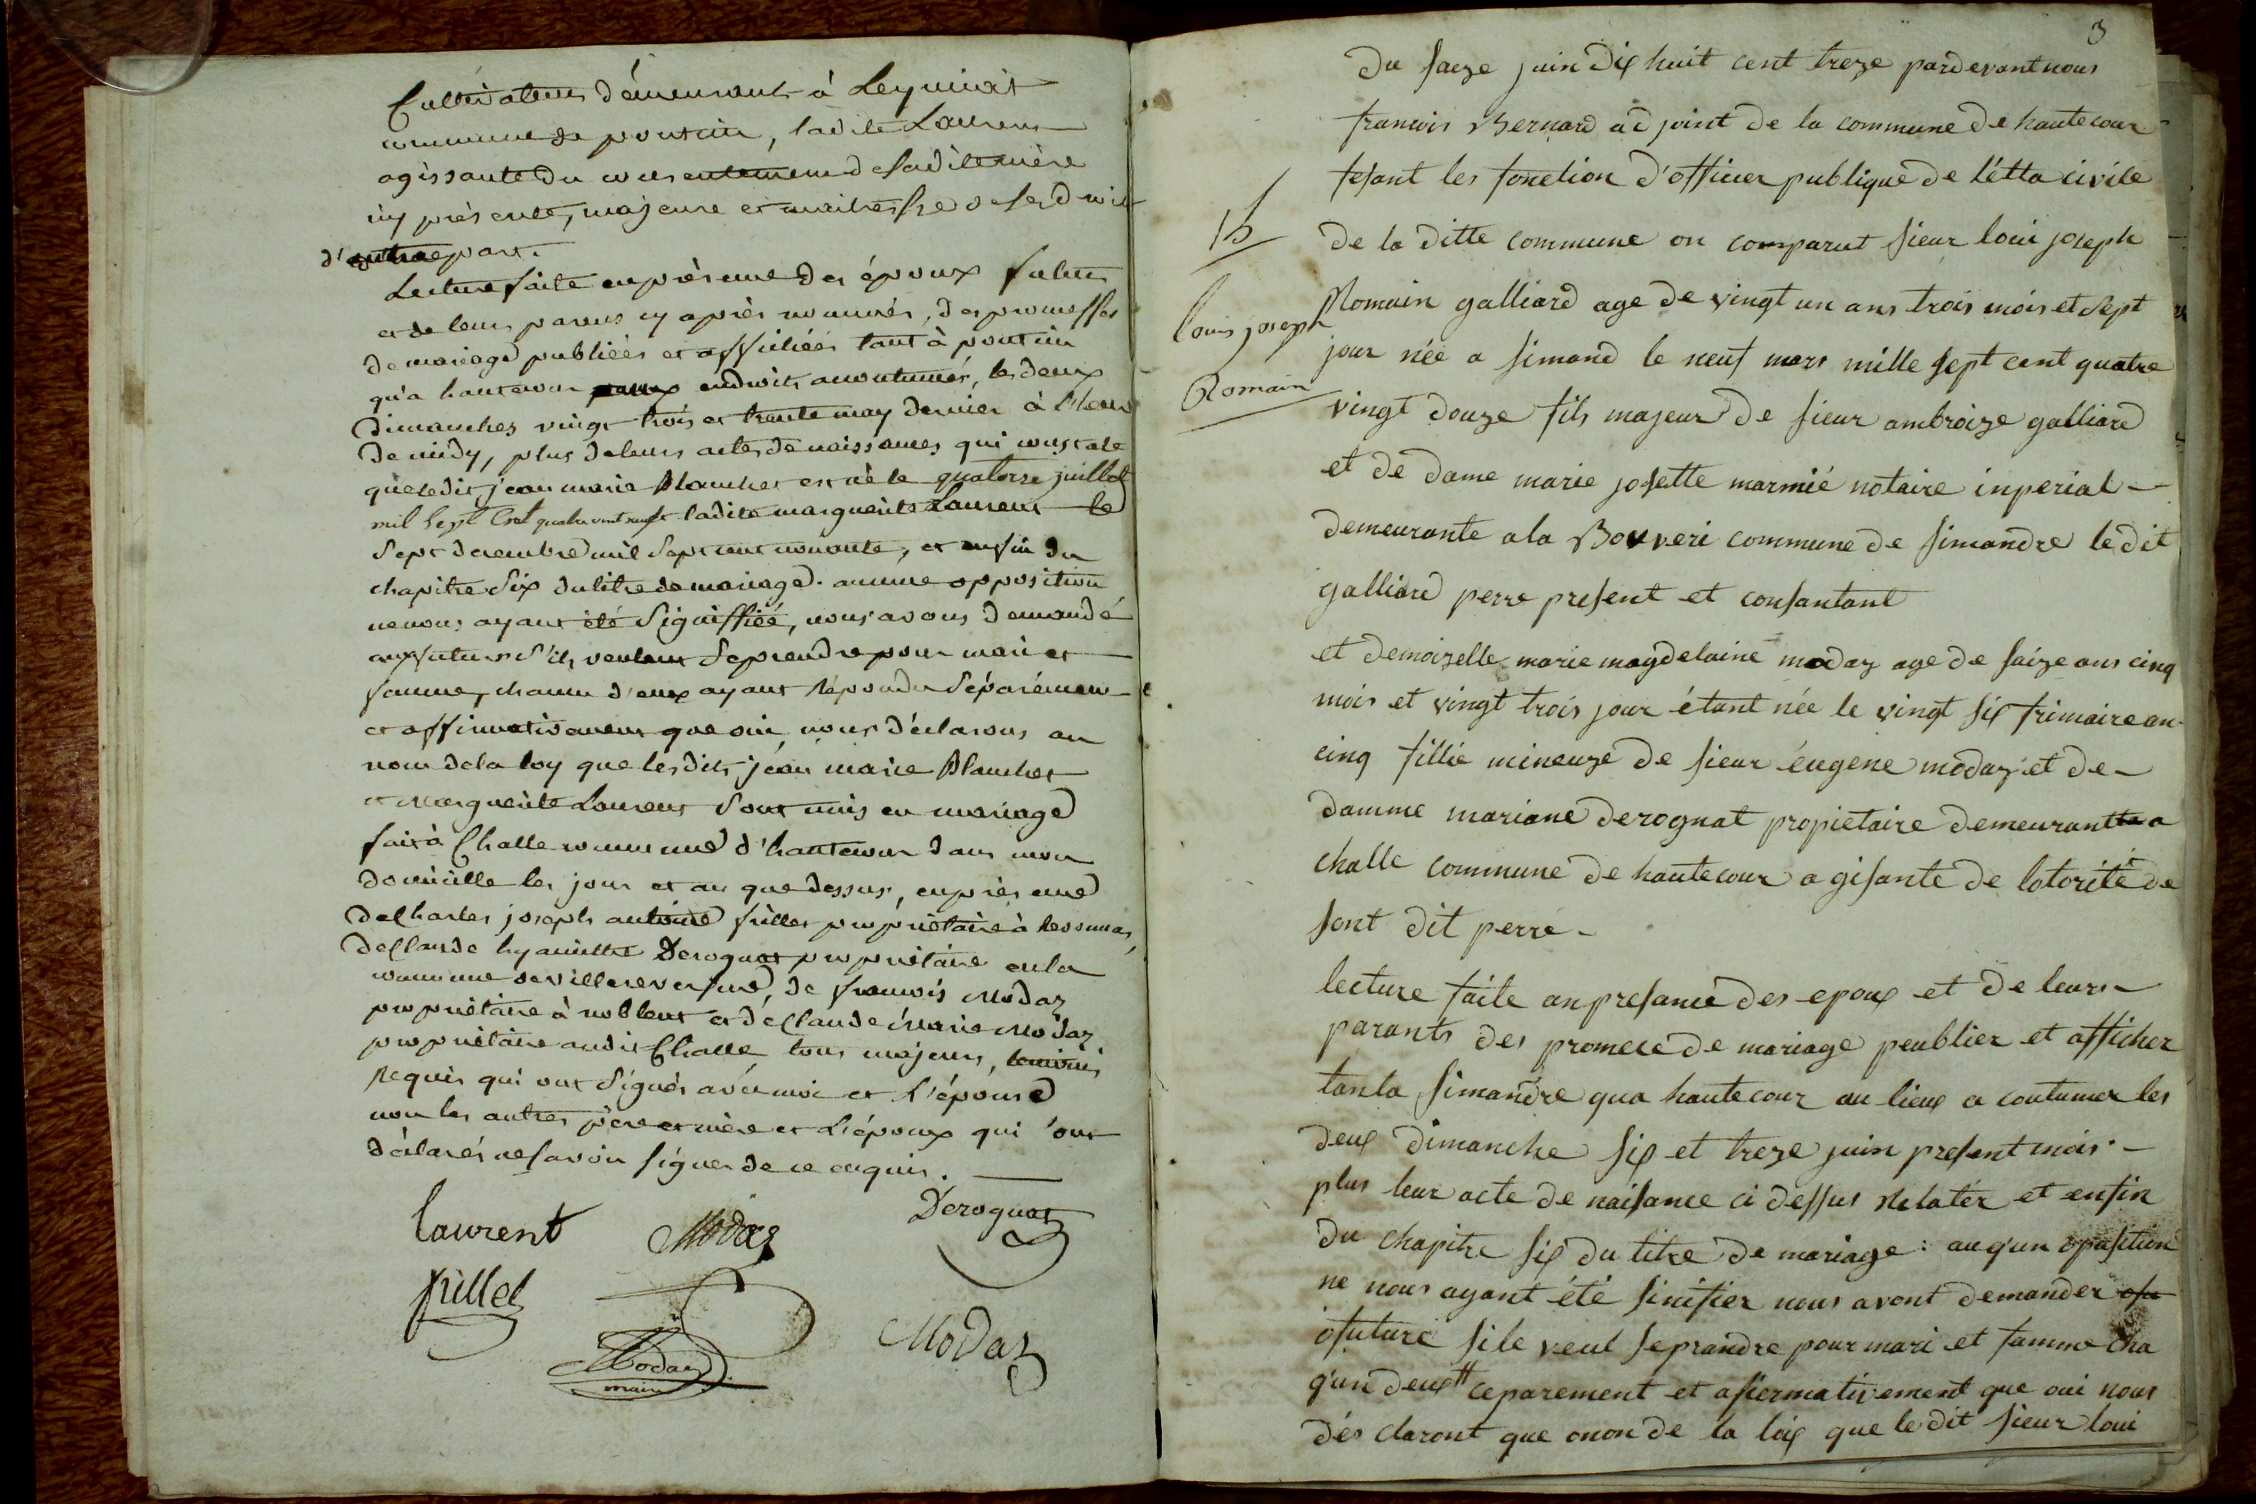 Cultivateurs démeurants à Leymiat
commune de poncin, ladite Laurent
agissante du consentement de sadite mère
icy présente, majeure et maitresse de ses droits
d'autre part.
Lecture faite en présence des époux futurs
et de leurs parens cy après nommés, des promesses
de mariage publiées et affichées tant à poncin
qu'a hautecour, endroits accoutumés, les deux
dimanches vingt trois et trente may dernier à l'heure
de midy, plus de leurs actes de naissances qui constate
que ledit jean marie Blanchet est né le quatorze juillet
mil sept cent quatre vingt neuf ladite marguerite Laurent le
sept decembre mil sept cent nonante, et enfin du
chapitre six du titre de mariage. aucune opposition
ne nous ayant été signiffiée, nous avons demandé
aux futurs s'ils veulent se prendre pour mari et
femme, chacun d'eux ayant répondu séparémens
et affirmativement que oui, nous déclarons au
nom de la loy que lesdits jean marie Blanchet
et Marguerite Laurent sont unis en mariage
fait à Challe commune d'hautecour dans mon
domicille les jour et an que dessus, en présence
de Charles joseph antoine fillet propriétaire à
de Claude hyacinthe Derognat propriétaire en la
commune de villereversure, de francois Modas
propriétaire à noblens et de Claude Marie Modas
propriétaire audit Challe, tous majeurs, temoins
requis qui ont signés avec moi et l'épouse
non les autres père et mère et l'époux qui ont
déclarés ne savoir signer de ce enquis.
Laurent Modas Derognat
fillet
Modas
Modas
maire
3
15
louis joseph
Romain
Du saeze juin Dix huit cent treze pardevant nous
francois Bernard adjoint de la commune de hautecour
fesant les fonction d'officier publique de l'étta civile
de la ditte commune on comparut sieur loui joseph
Romain galliard age de vingt un ans trois mois et sept
jour née a simand le neuf mars mille sept cent quatre
vingt douze fils majeur de sieur ambroize galliard
et de dame marie josette marmié notaire inperial
demeurante a la Bouveri commune de simandre le dit
galliard perre present et consantant
et demoizelle marie magdelaine modas age de saize ans cinq
mois et vingt trois jour étant née le vingt six frimaire an
cinq fillie mineuze de sieur éugene modas et de
damme mariane derognat propietaire demeurantte a
challe commune de hautecour agisante de lotorité de
sont dit perre
lecture faite an presance des epoux et de leurs
parants des promece de mariage peublier et afficher
tanta simandre qua hautecour au lieux acoutumer les
deux dimanche six et treze juin present mois
plus leur acte de naisance ci dessus relatér et enfin
du chapitre six du titre de mariage : auq'un oposition
ne nous ayant été sinifier nous avont demander
ofuture sile veul seprandre pour mari et famme cha
q'un deux ceparement et afiermativement que oui nous
dés claront que onon de la loix que le dit sieur loui